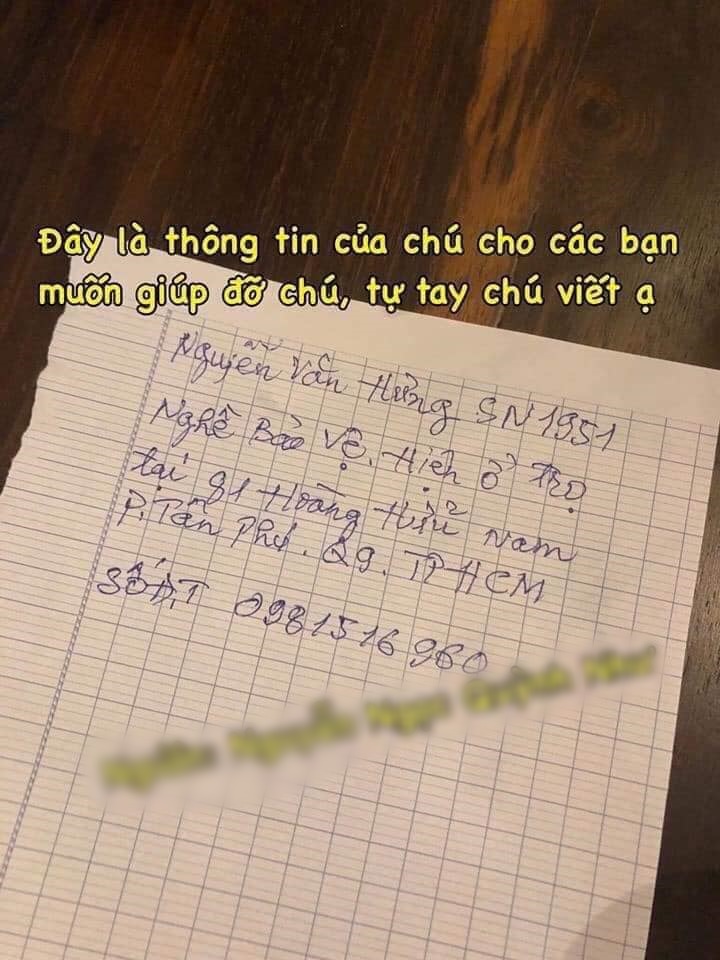 Đây là thông tin của chú cho các bạn
muốn giúp đỡ chú, tự tay chú viết ạ
Nguyễn Văn Hùng SN 1951
Nghề Bảo Vệ. Hiện ở Trọ
tại 91 Hoàng Hữu Nam
P. Tân Phú. Q9. TPHCM
SỐ ĐT 0981516960